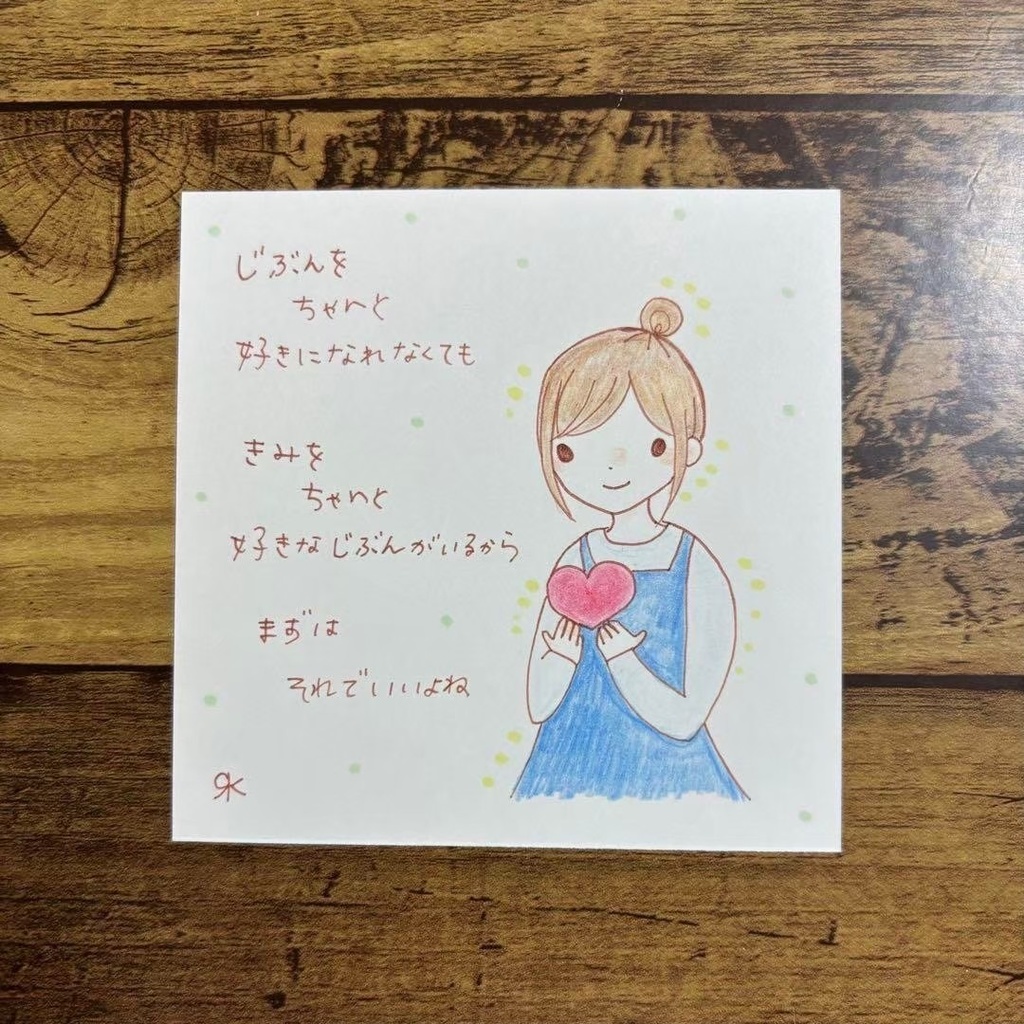 じぶんを
ちゃんと
好きになれなくても
きみを
ちゃんと
好きなじぶんがいるから
まずは
それでいいよね